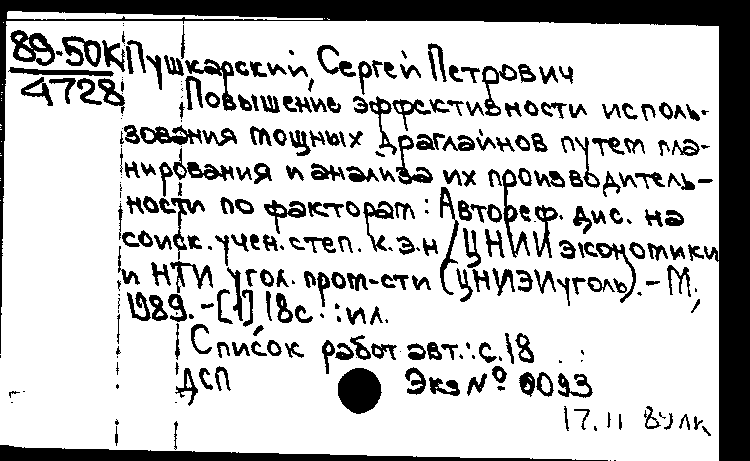 89-50К Пушкарский, Сергей Петрович
4728 Повышение эффективности исполь-
зования мощных драглайнов путем пла-
нирования и анализа их производитель-
ности по факторам: Автореф. дис. на
соиск. учен. степ. к.э.н/ЦНИИ экономики
и НТИ угол. пром-сти (ЦНИЭИуголь).-М,
1989.-[1] 18с.:ил.
Список работ авт.:с.18
ДСП Экз № 0093
17.11